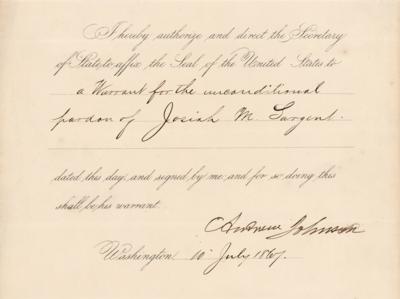 I hereby authorize and direct the Secretary
of State to affix the Seal of the United States to
a Warrant for the unconditional
pardon of Josiah M. Sargent.
dated this day, and signed by me and for so doing this
shall be his warrant.
Andrew Johnson
Washington 10 July 1867.